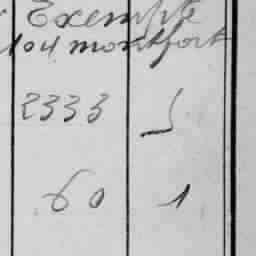 Exempte
104 montfort
2333
60 1